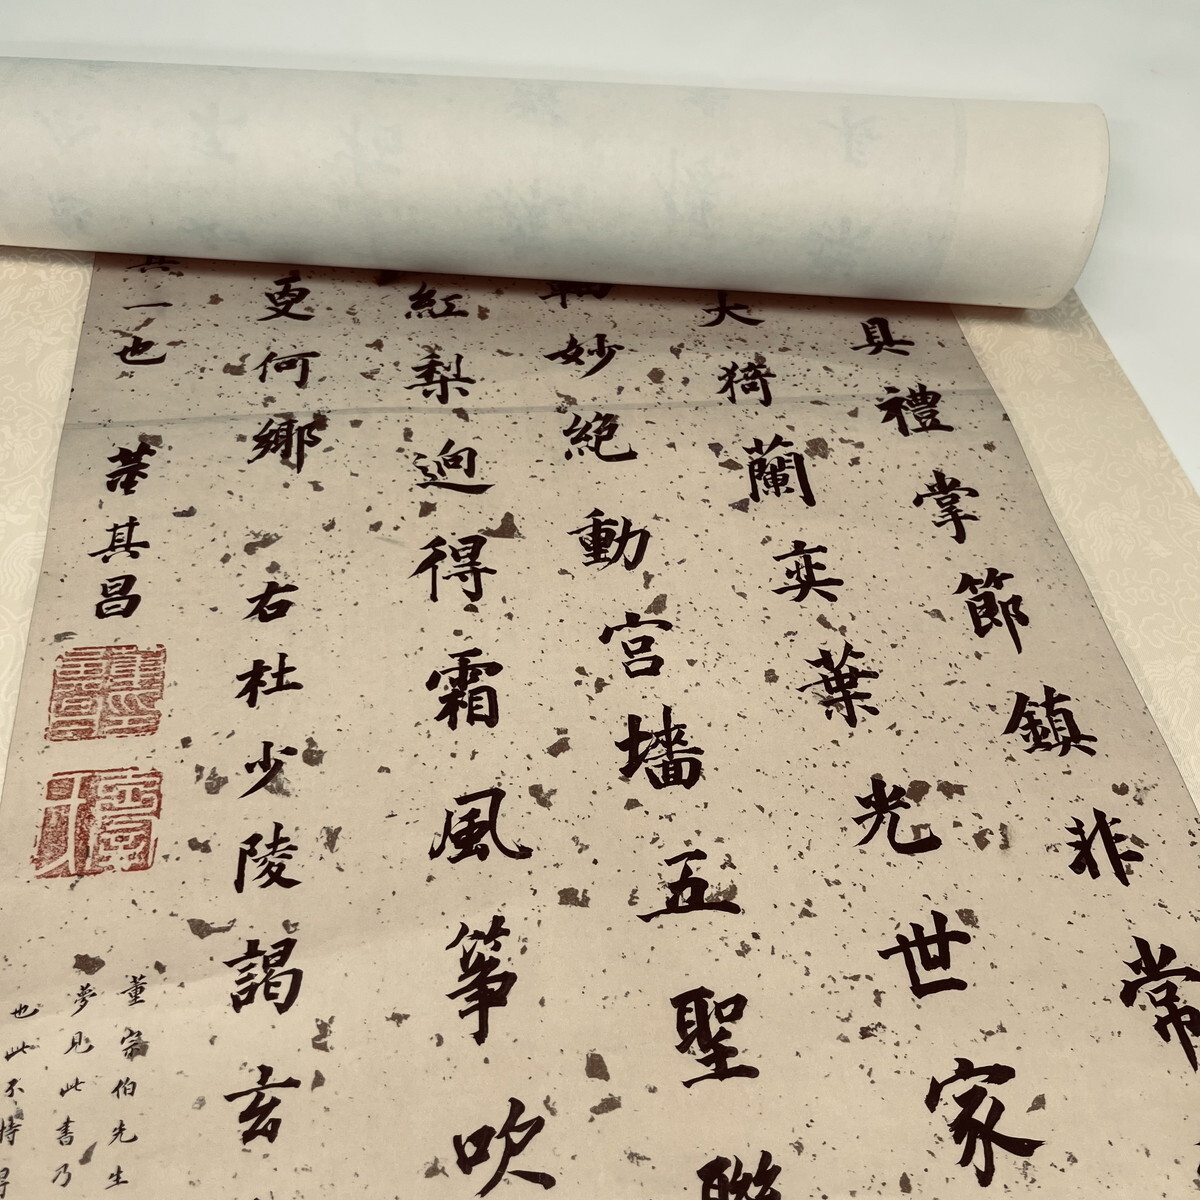 具禮掌節鎮非常
大猗蘭奕葉光世家
妙絕動宮墻五聖聯
紅梨迥得霜風箏吹
更何鄉 右杜少陵謁玄
其一也 董其昌
董宗伯先生
夢見此書乃
也此不特得